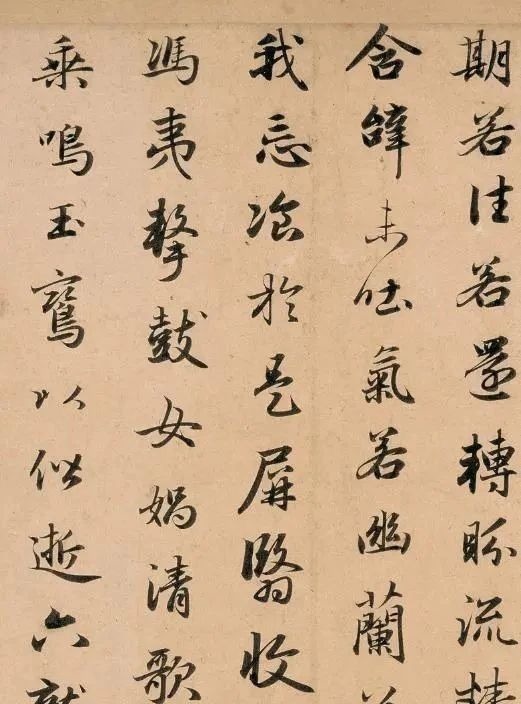 期若往若還轉眄流精
含辭未吐氣若幽蘭
我忘湌於是屏翳收
馮夷擊鼓女媧清歌
乘鳴玉鸞以偕逝六龍